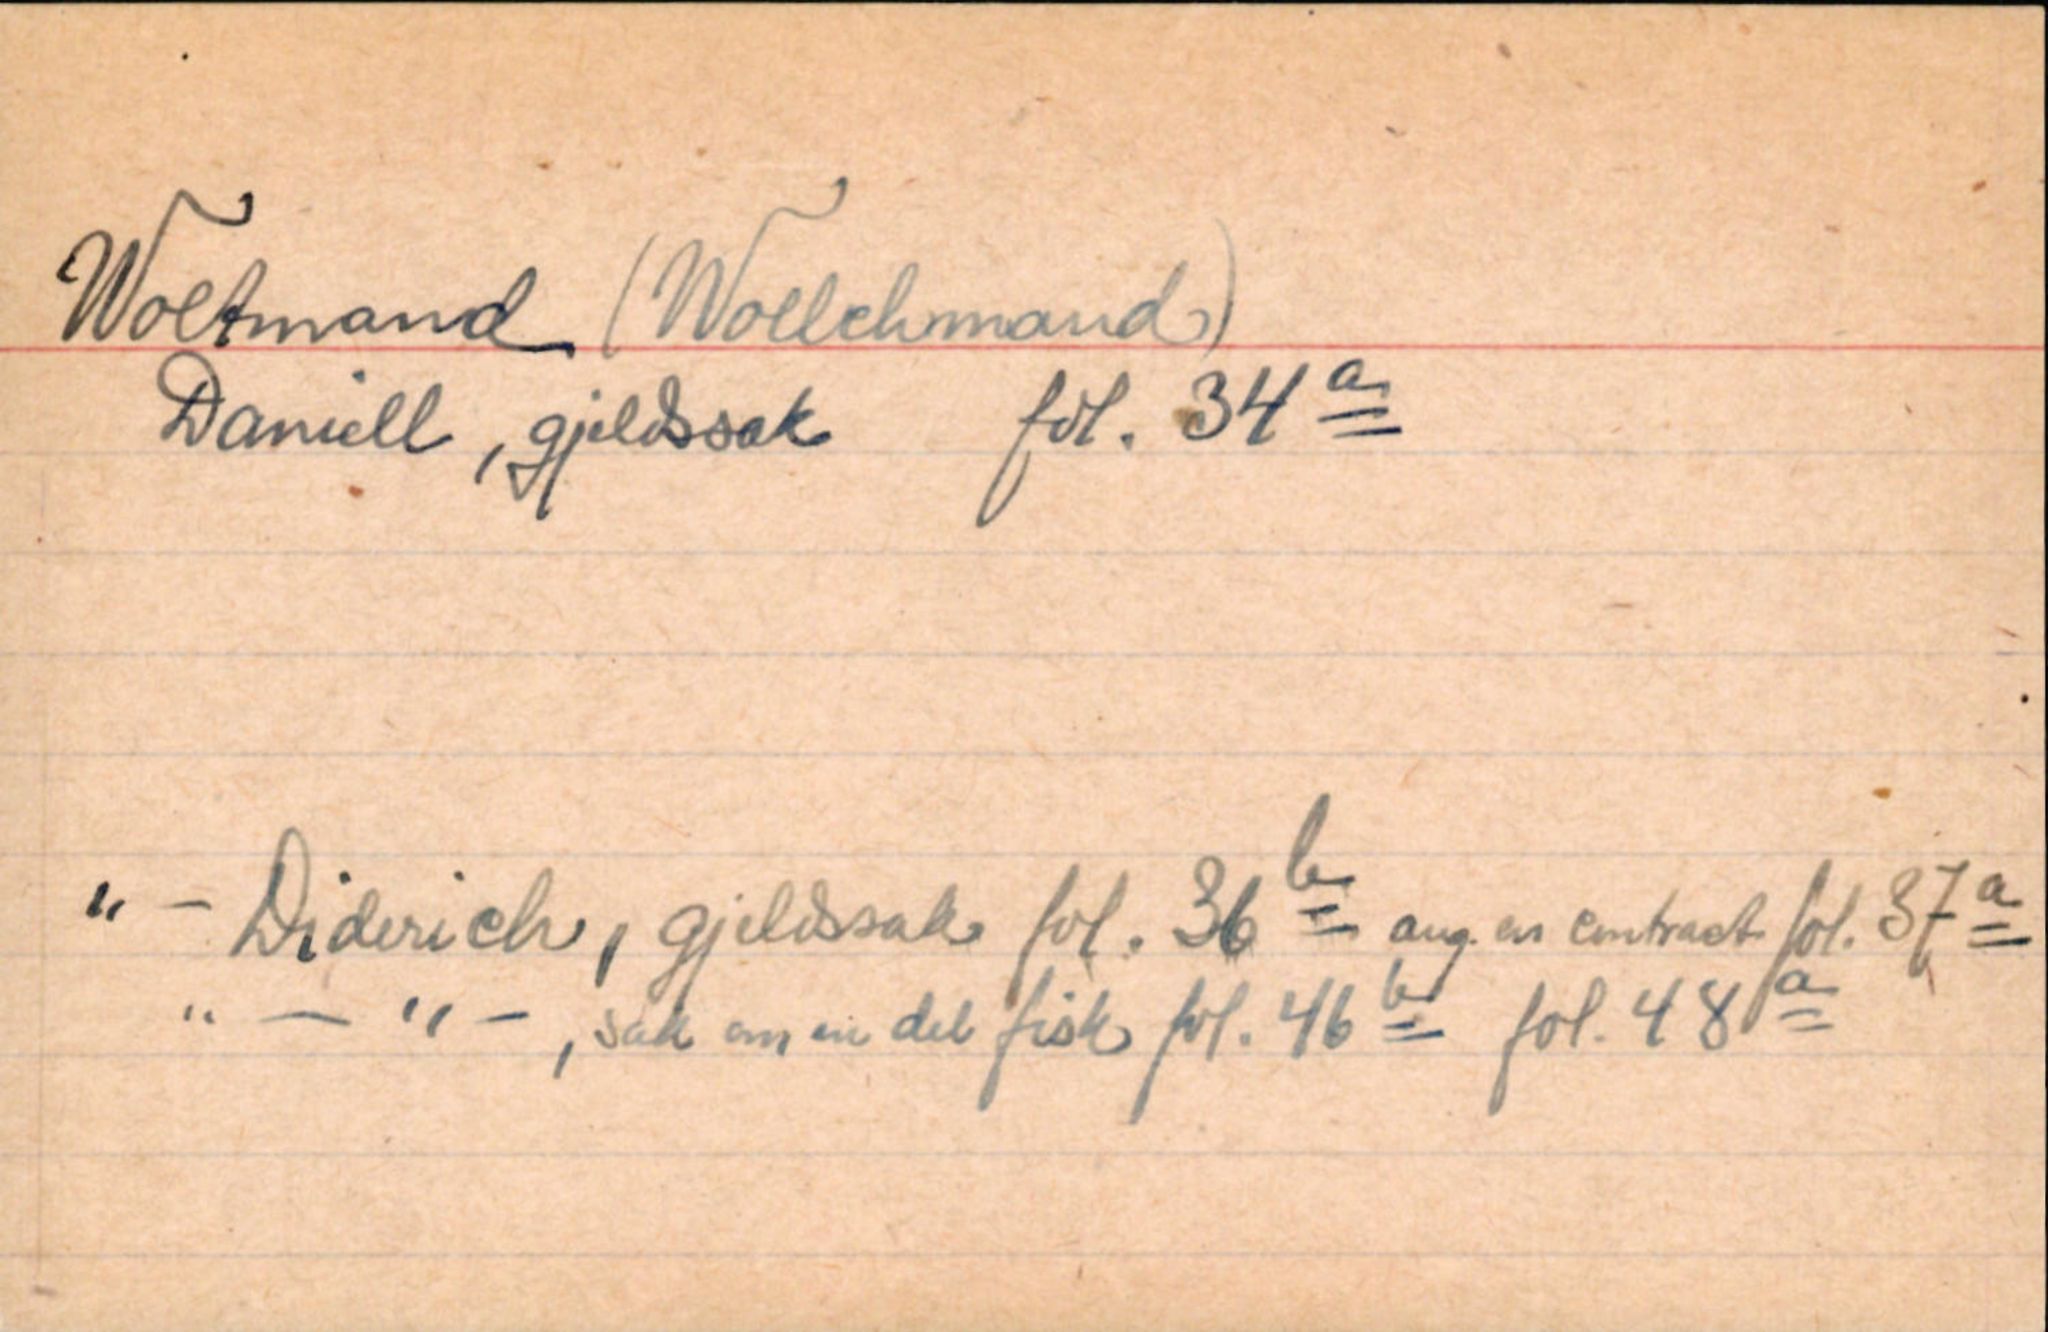 Woltmand (Wollchmand)
Daniell, gjeldssak fol. 34 a
" - Diderich, gjeldssak fol. 36 b ang. en contract fol. 37 a
" - " -, sak om en del fisk fol. 46 b fol. 48 a